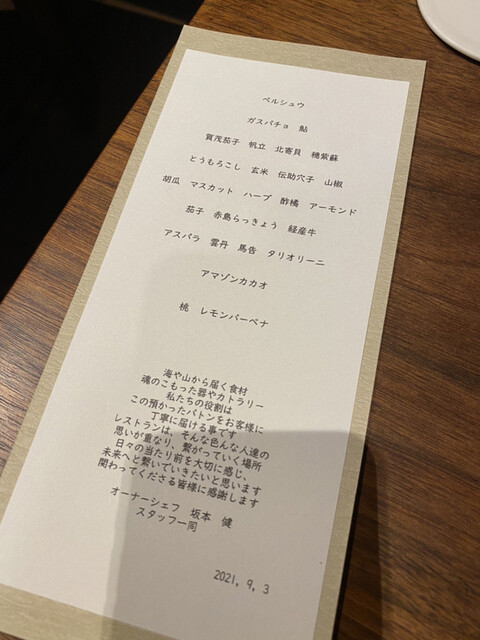 ペルシュウ
ガスパチョ 鮎
賀茂茄子 帆立 北寄貝 穂紫蘇
とうもろこし 玄米 伝助穴子 山椒
胡瓜 マスカット ハーブ 酢橘 アーモンド
茄子 赤島らっきょう 経産牛
アスパラ 雲丹 馬告 タリオリーニ
アマゾンカカオ
桃 レモンバーベナ
海や山から届く食材
魂のこもった器やカトラリー
私たちの役割は
この預かったバトンをお客様に
丁寧に届ける事です
レストランは、そんな色んな人達の
思いが重なり、繋がっていく場所
日々の当たり前を大切に感じ、
未来へと繋いでいきたいと思います
関わってくださる皆様に感謝します
オーナーシェフ 坂本 健
スタッフ一同
2021. 9. 3